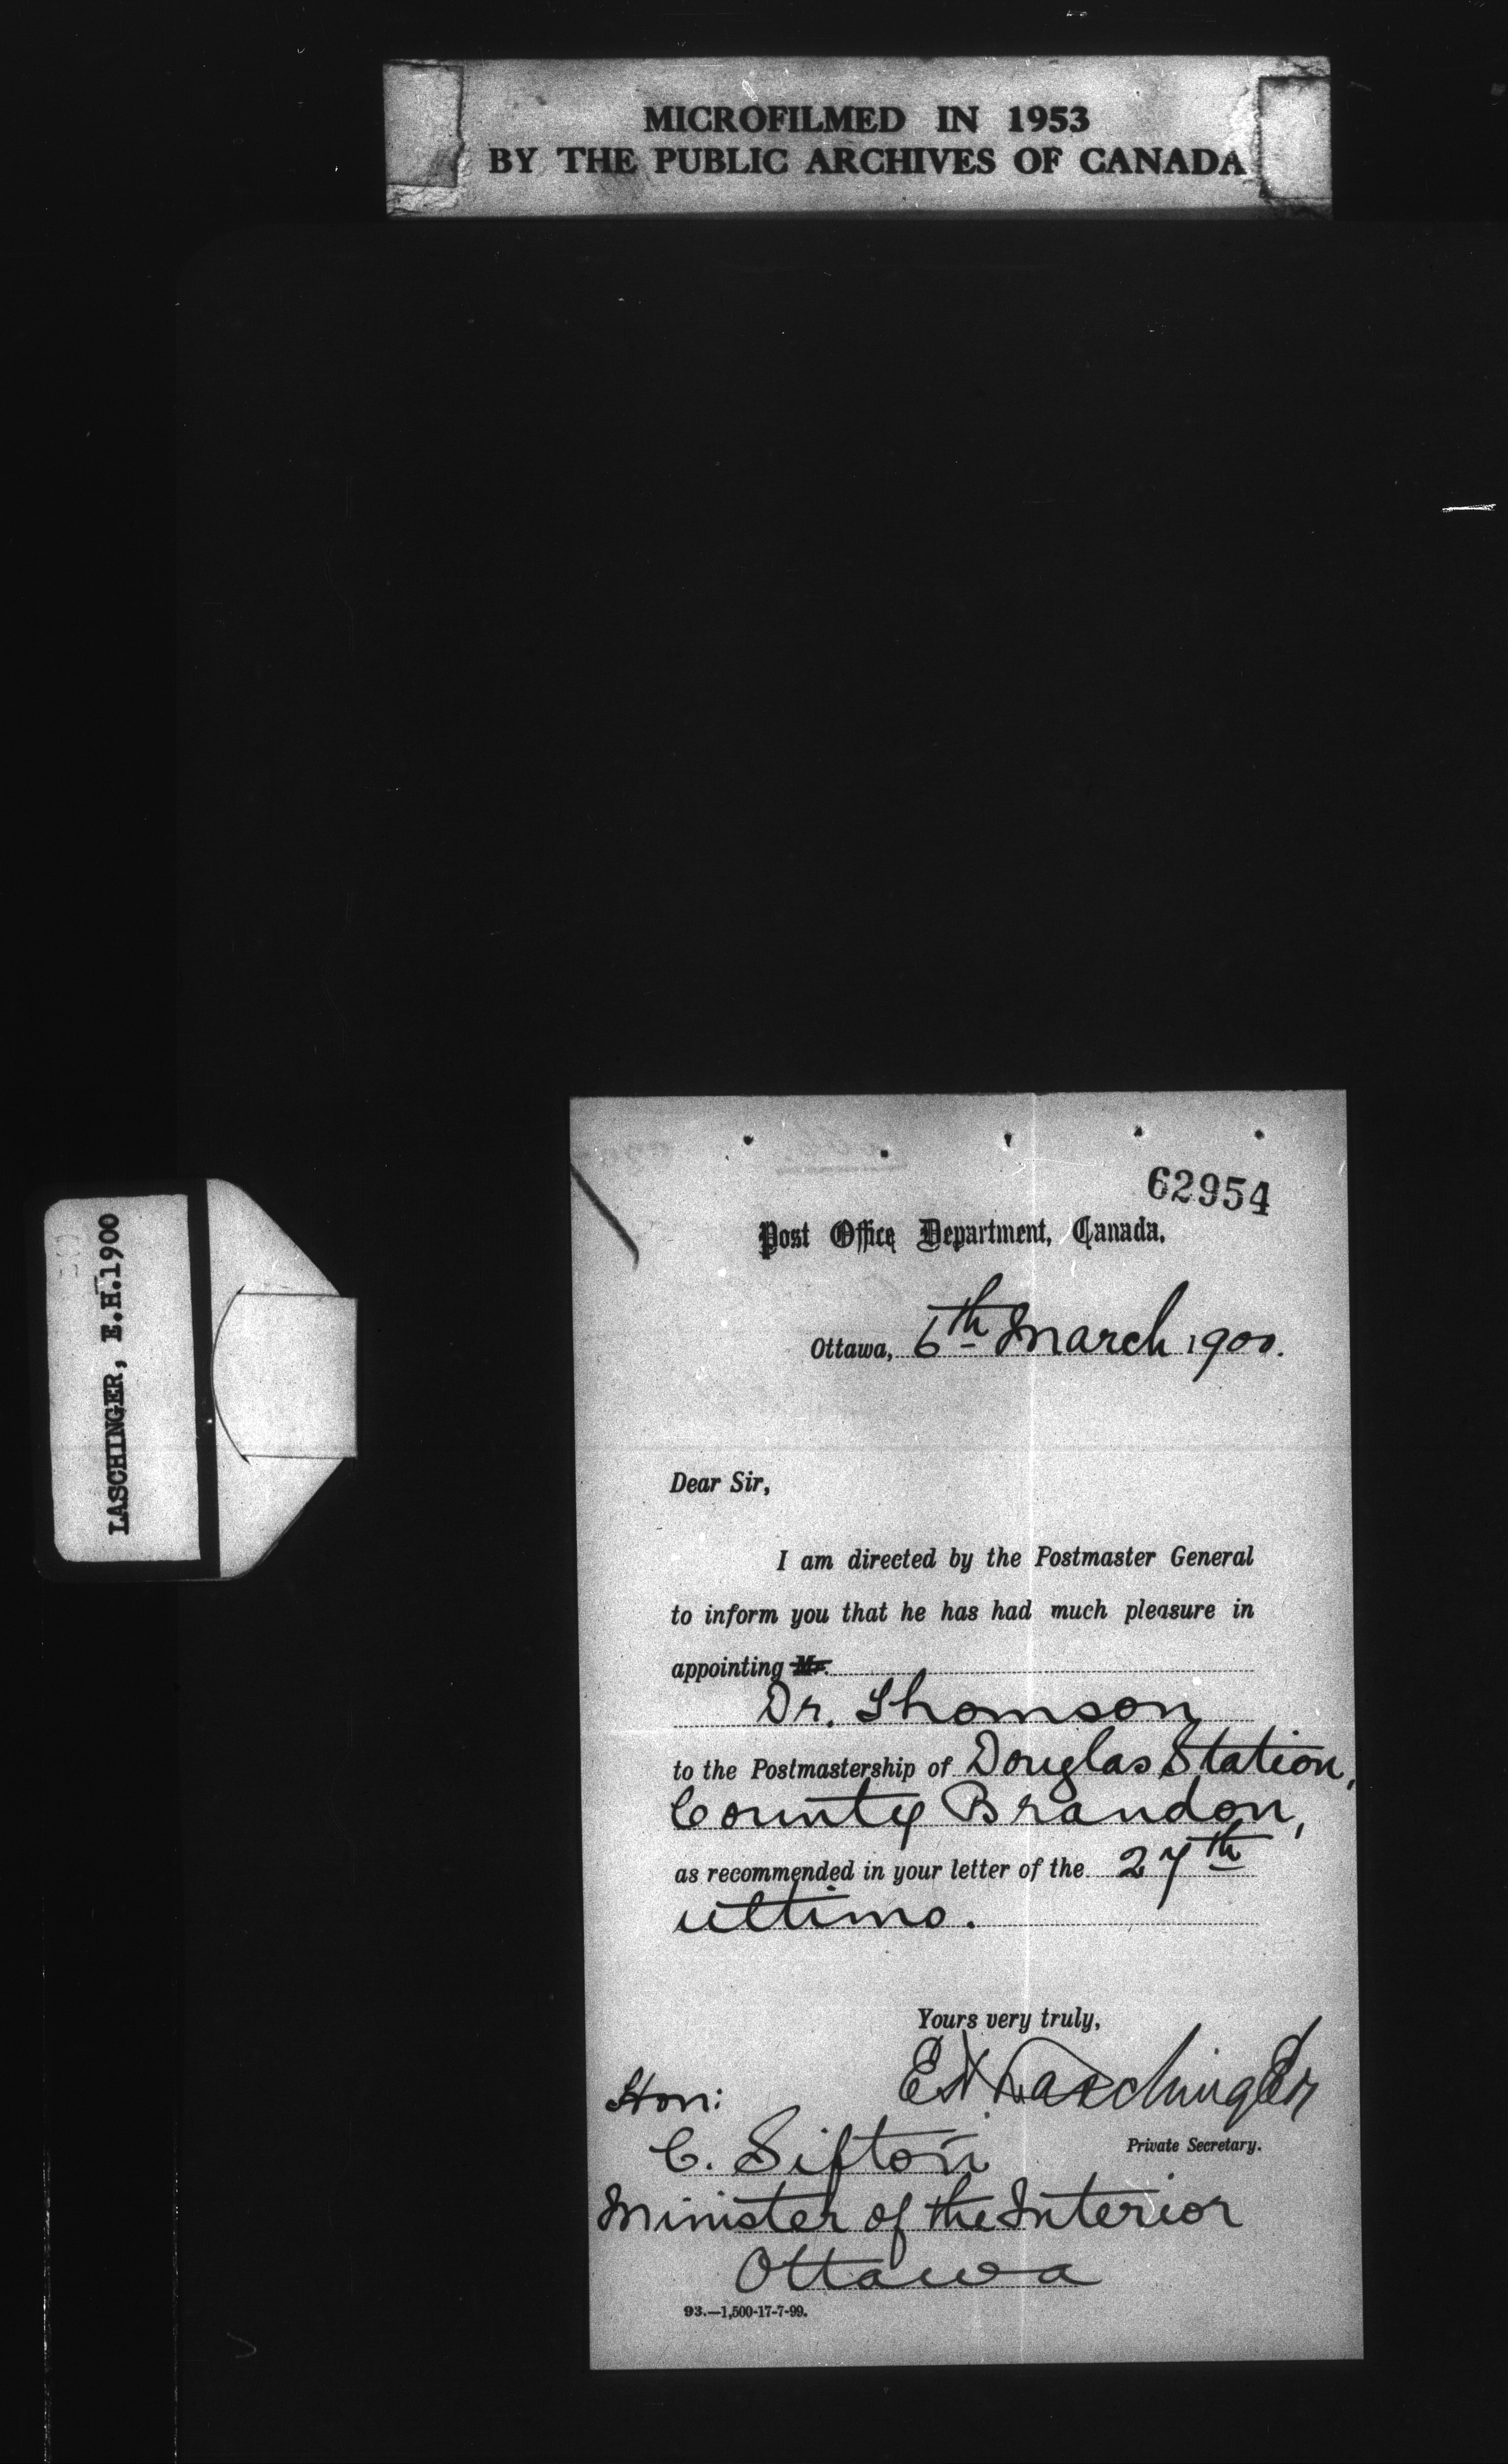 MICROFILMED IN 1953
BY THE PUBLIC ARCHIVES OF CANADA
LASCHINGER, E.H. 1900
62954
Post Office Department, Canada,
Ottawa, 6th March 1900.
Dear Sir,
I am directed by the Postmaster General
to inform you that he has had much pleasure in
appointing Mr.
Dr. Thomson
to the Postmastership of Douglas Station,
County Brandon,
as recommended in your letter of the 27th
ultimo.
Yours very truly,
E H Laschinger
Private Secretary.
Hon:
C. Sifton
Minister of the Interior
Ottawa
93.—1,500-17-7-99.